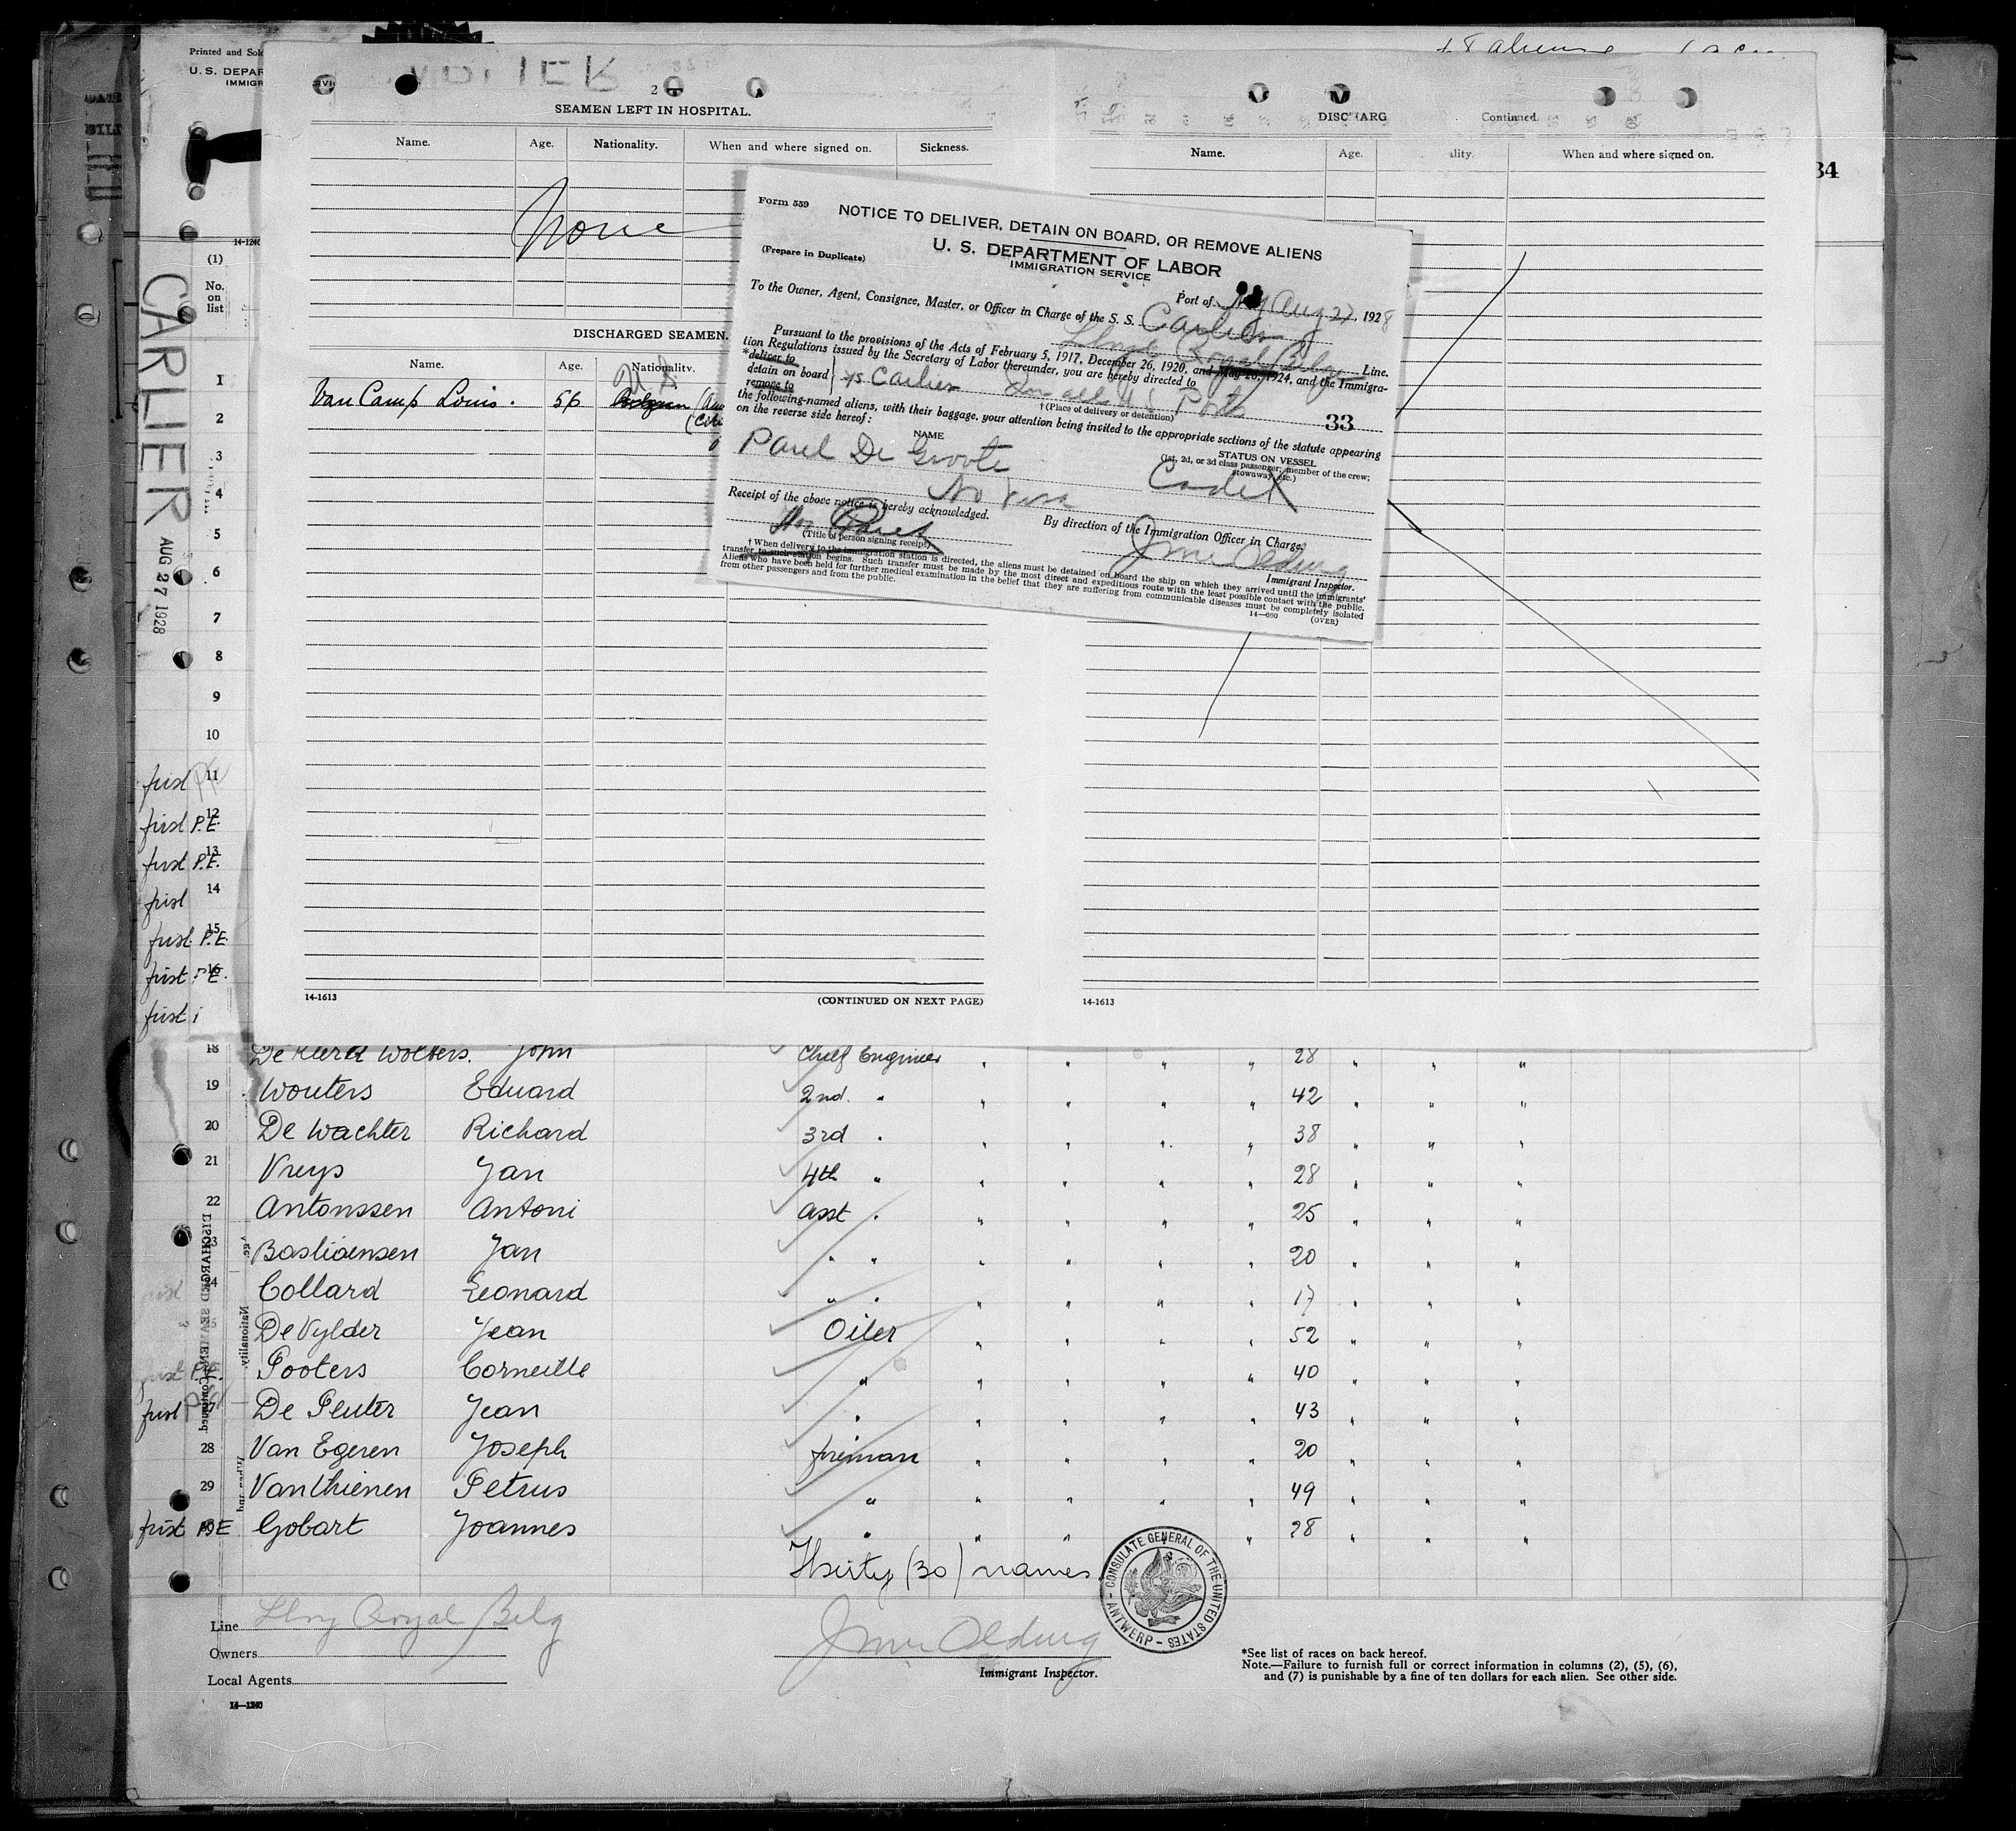 Printed and Sol
U. S. DEPAR
IMMIGR
34
14-1240
(1)
No.
on
list
CARLIER
AUG 27 1928
2
SEAMEN LEFT IN HOSPITAL.
Name. Age. Nationality. When and where signed on. Sickness.
None
DISCHARGED SEAMEN.
Name. Age. Nationality.
Van Camp Louis. 56 Belgian
14-1613 (CONTINUED ON NEXT PAGE)
DISCHARG Continued.
Name. Age. ality. When and where signed on.
14-1613
Form 559
NOTICE TO DELIVER, DETAIN ON BOARD, OR REMOVE ALIENS
(Prepare in Duplicate)
U. S. DEPARTMENT OF LABOR
IMMIGRATION SERVICE
Port of NY Aug 27, 1928
To the Owner, Agent, Consignee, Master, or Officer in Charge of the S. S. Carlier
Royal Belge Line.
Pursuant to the provisions of the Acts of February 5, 1917, December 26, 1920, and May 26, 1924, and the Immigra-
tion Regulations issued by the Secretary of Labor thereunder, you are hereby directed to
*deliver to
detain on board
remove to
SS Carlier in all U S Ports
†(Place of delivery or detention)
33
the following-named aliens, with their baggage, your attention being invited to the appropriate sections of the statute appearing
on the reverse side hereof:
NAME
STATUS ON VESSEL
(1st, 2d, or 3d class passenger; member of the crew;
stowaway etc.)
Paul De Groote Cadet
No visa
Receipt of the above notice is hereby acknowledged.
By direction of the Immigration Officer in Charge,
(Title of person signing receipt)
Immigrant Inspector.
† When delivery to the immigration station is directed, the aliens must be detained on board the ship on which they arrived until the immigrants'
transfer to such station begins. Such transfer must be made by the most direct and expeditious route with the least possible contact with the public.
Aliens who have been held for further medical examination in the belief that they are suffering from communicable diseases must be completely isolated
from other passengers and from the public.
14—660 (OVER)
1
2
3
4
5
6
7
8
9
10
first 11
first P.E. 12
first P.E. 13
first 14
first P.E. 15
first P.E. 16
first
18 John Chief Engineer 28
19 Wouters Eduard 2nd. " 42
20 De Wachter Richard 3rd " 38
21 Vreys Jan 4th " 28
22 Antonssen Antoni Asst " 25
Bastiaensen Jan " " 20
Collard Leonard " " 17
De Vylder Jean Oiler 52
first P.E. Pooters Corneille " 40
first De Peuter Jean " 43
28 Van Egeren Joseph fireman 20
29 Van thienen Petrus " 49
first P.E. Gobart Joannes " 28
Thirty (30) names
CONSULATE GENERAL OF THE UNITED STATES
- ANTWERP -
Line Royal Belg
Owners
Local Agents
14—1240
Immigrant Inspector.
*See list of races on back hereof.
Note.—Failure to furnish full or correct information in columns (2), (5), (6),
and (7) is punishable by a fine of ten dollars for each alien. See other side.